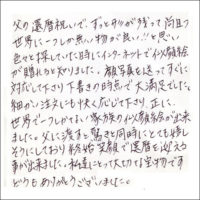 父の還暦祝いで、ずっと形が残って尚且つ
世界に一つしか無い物が良い!!と思い
色々と探していた時にインターネットで似顔絵
が贈れると知りました。顔写真を送ってすぐに
対応して下さり下書きの時点で大満足でした。
細かい注文にも快く応じて下さり、正に
世界で一つしかない家族の似顔絵が出来
ました。父に渡すと驚きと同時にとても嬉し
そうにしており終始笑顔で還暦を迎える
事が出来ました。私達にとって大切な宝物です
どうもありがとうございました。